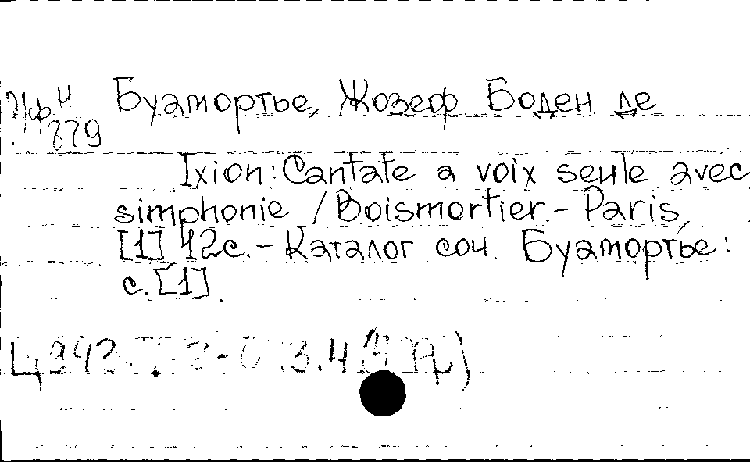 Буамортье, Жозеф Боден де
879
Ixion: Cantate a voix seule avec
simphonie / Boismortier. - Paris,
[1] 12с. - Каталог соч. Буамортье:
с. [1].